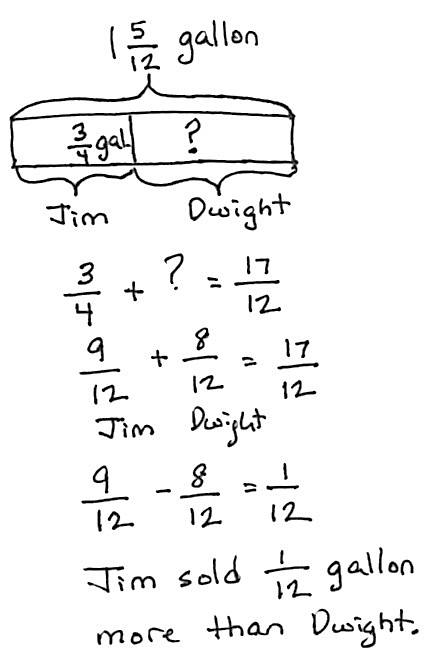 1 5/12 gallon
3/4 gal ?
Jim Dwight
3/4 + ? = 17/12
9/12 + 8/12 = 17/12
Jim Dwight
9/12 - 8/12 = 1/12
Jim sold 1/12 gallon
more than Dwight.